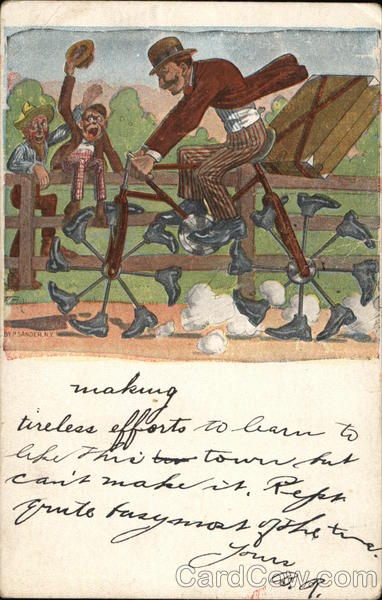 BY P. SANDER, N.Y.
making
tireless efforts to learn to
like this town but
can't make it. Kept
quite busy most of the time.
Yours
CardCow.com